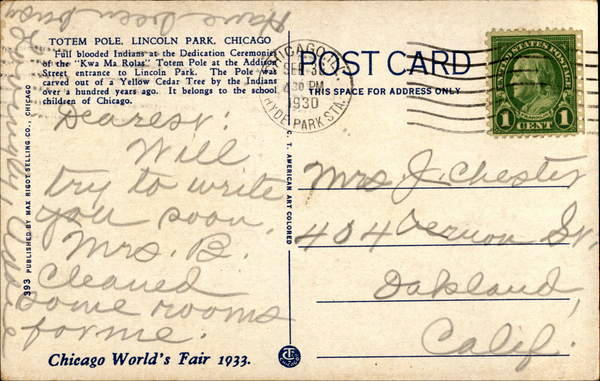 TOTEM POLE, LINCOLN PARK, CHICAGO
Full blooded Indians at the Dedication Ceremonies
of the "Kwa Ma Rolas" Totem Pole at the Addison
Street entrance to Lincoln Park. The Pole was
carved out of a Yellow Cedar Tree by the Indians
over a hundred years ago. It belongs to the school
children of Chicago.
Dearest:
Will
try to write
you soon.
Mrs. B.
cleaned
some rooms
for me.
Have been
Chicago World's Fair 1933.
393 PUBLISHED BY MAX RIGOT SELLING CO., CHICAGO
C. T. AMERICAN ART COLORED
CHICAGO, ILL.
SEP 3
30 PM
1930
HYDE PARK STA.
POST CARD
THIS SPACE FOR ADDRESS ONLY
UNITED STATES POSTAGE
1 CENT 1
Mrs. J. Chester
404 Vernon St.
Oakland,
Calif.